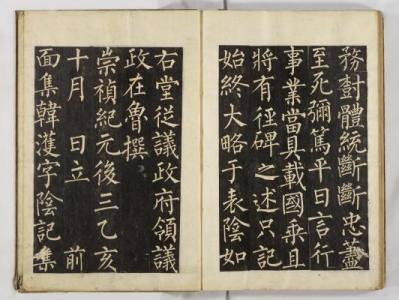 務對體統斷斷忠藎
至死彌篤平日言行
事業當具載國乘且
將有徑碑之述只記
始終大略于表陰如
右堂從議政府領議
政在魯撰
崇禎紀元後三乙亥
十月 日立 前
面集韓濩字陰記集